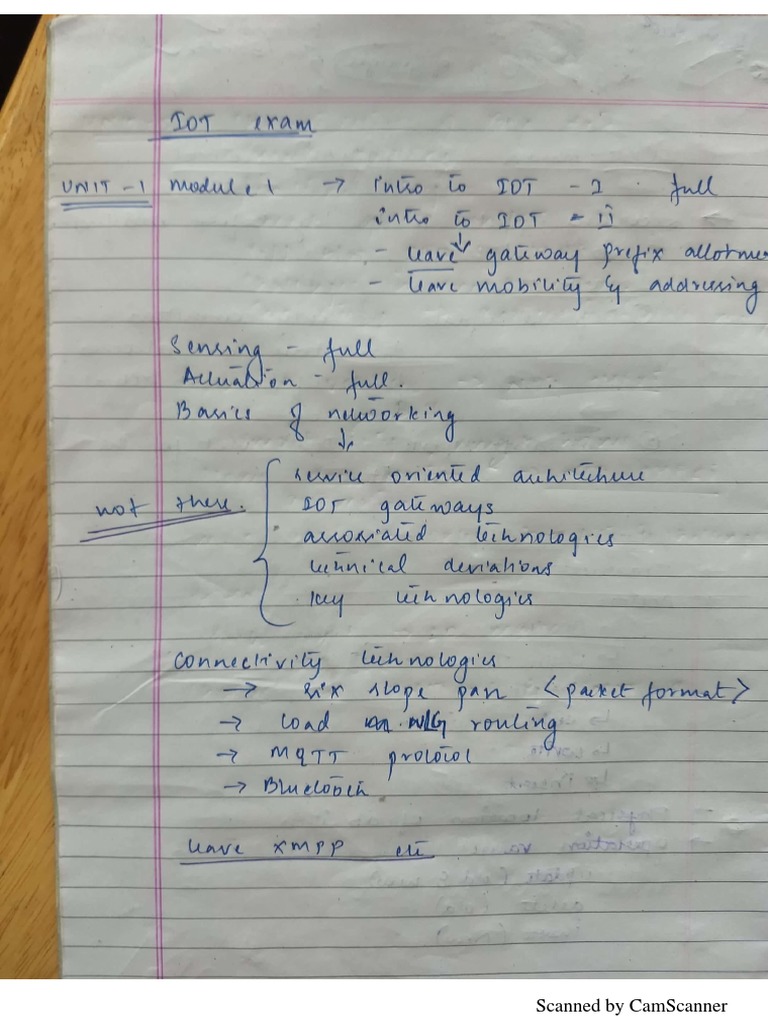 IOT exam
UNIT-1 Module 1 → intro to IOT - I . full
intro to IOT - II
- leave gateway prefix allotme
- leave mobility & addressing
Sensing - full
Actuation - full.
Basics of networking
not there.
service oriented architecture
IOT gateways
associated technologies
technical deviations
key technologies
Connectivity technologies
→ six slope pan <packet format>
→ Load routing
→ MQTT protocol
→ Bluetooth
leave XMPP etc
Scanned by CamScanner